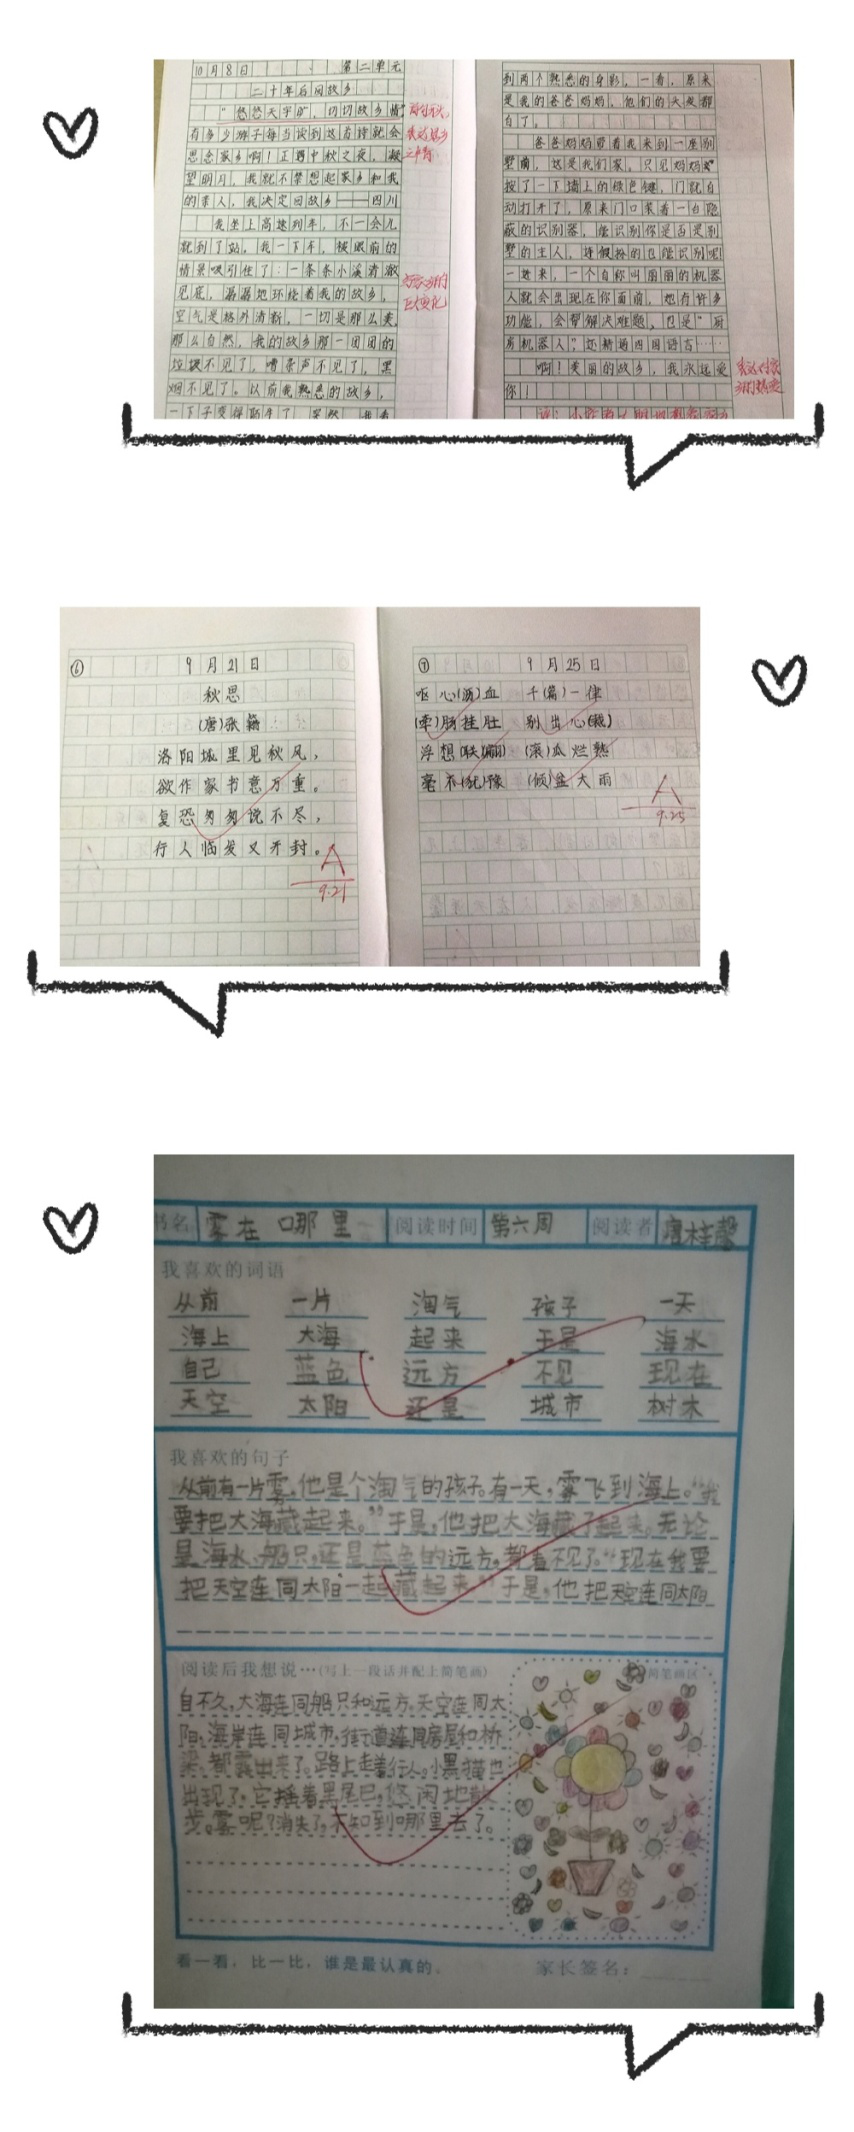 10月8日 第二单元
二十年后回故乡
“悠悠天宇旷，切切故乡情”
有多少游子每当读到这首诗就会
思念家乡啊！正遇中秋之夜，凝
望明月，我就不禁想起家乡和我
的亲人，我决定回故乡——四川
我坐上高速列车，不一会儿
就到了站。我一下车，被眼前的
情景吸引住了：一条条小溪清澈
见底，潺潺地环绕着我的故乡，
空气是格外清新，一切是那么美，
那么自然，我的故乡那一团团的
垃圾不见了，嘈杂声不见了，黑
烟不见了。以前我熟悉的故乡，
一下子变得陌生了 突然 我看
到两个熟悉的身影，一看，原来
是我的爸爸妈妈，他们的头发都
白了。
爸爸妈妈带着我来到一座别
墅前，这是我们家。只见妈妈
按了一下墙上的绿色键，门就自
动打开了，原来门口装着一台隐
蔽的识别器，能识别你是否是别
墅的主人，连假扮的也能识别呢！
一进来，一个自称叫丽丽的机器
人就会出现在你面前，她有许多
功能，会帮解决难题，也是“厨
房机器人”，还精通四国语言……
啊！美丽的故乡，我永远爱
你！
⑥ 9月21日
秋思
(唐)张籍
洛阳城里见秋风，
欲作家书意万重。
复恐匆匆说不尽，
行人临发又开封。
A
9.21
⑦ 9月25日
呕心(沥)血 千(篇)一律
(牵)肠挂肚 别出心(裁)
浮想(联翩) (滚)瓜烂熟
毫不(犹)豫 (倾)盆大雨
A
9.25
书名 雾在哪里 阅读时间 第六周 阅读者 唐梓馨
我喜欢的词语
从前 一片 淘气 孩子 一天
海上 大海 起来 于是 海水
自己 蓝色 远方 不见 现在
天空 太阳 还是 城市 树木
我喜欢的句子
从前有一片雾,他是个淘气的孩子。有一天,雾飞到海上。“我
要把大海藏起来。”于是,他把大海藏了起来。无论
是海水、船只,还是蓝色的远方,都看不见了。“现在我要
把天空连同太阳一起藏起来。”于是,他把天空连同太阳
阅读后我想说…(写上一段话并配上简笔画)
简笔画区
自不久,大海连同船只和远方,天空连同太
阳,海岸连同城市,街道连同房屋和桥
梁,都露出来了。路上走着行人。小黑猫也
出现了,它摇着黑尾巴,悠闲地散
步。雾呢?消失了,不知到哪里去了。
看一看，比一比，谁是最认真的。 家长签名：